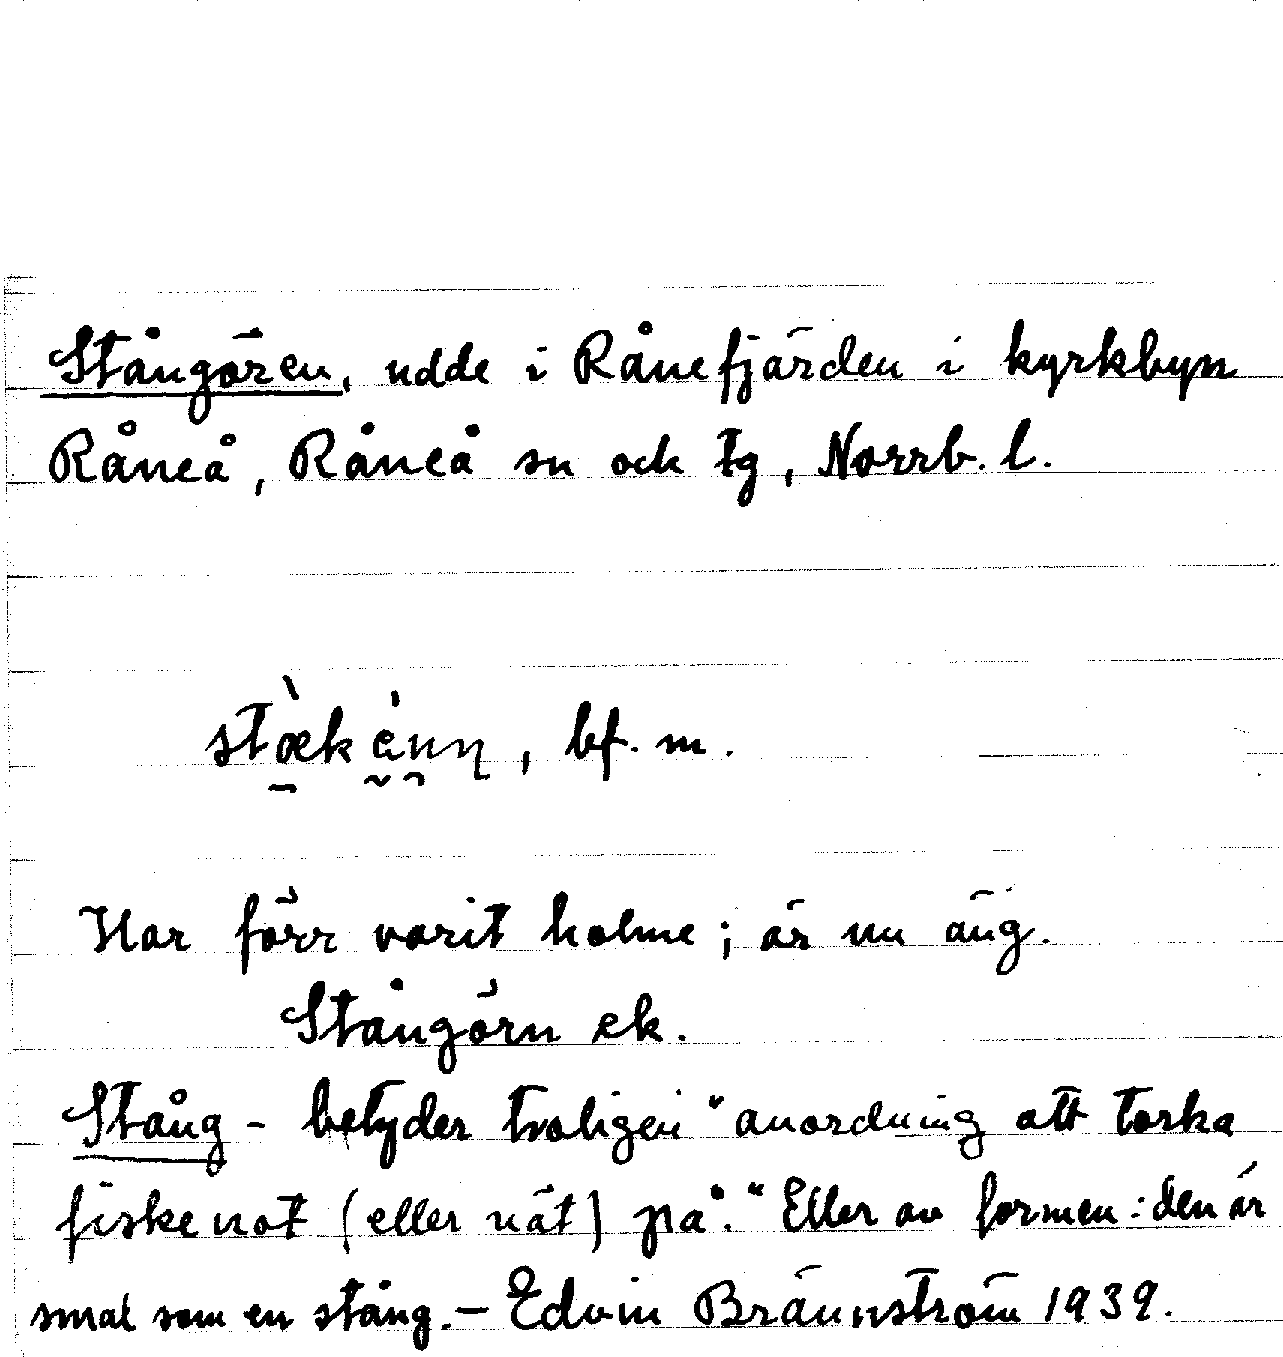 Stångören, udde i Rånefjärden i kyrkbyn
Råneå, Råneå sn och tg, Norrb. l.
bf. m.
Har förr varit holme; är nu äng.
Stångörn ek.
Stång - betyder troligen "anordning att torka
fiskenot (eller nät) på." Eller av formen: den är
smal som en stång. - Edvin Brännström 1939.